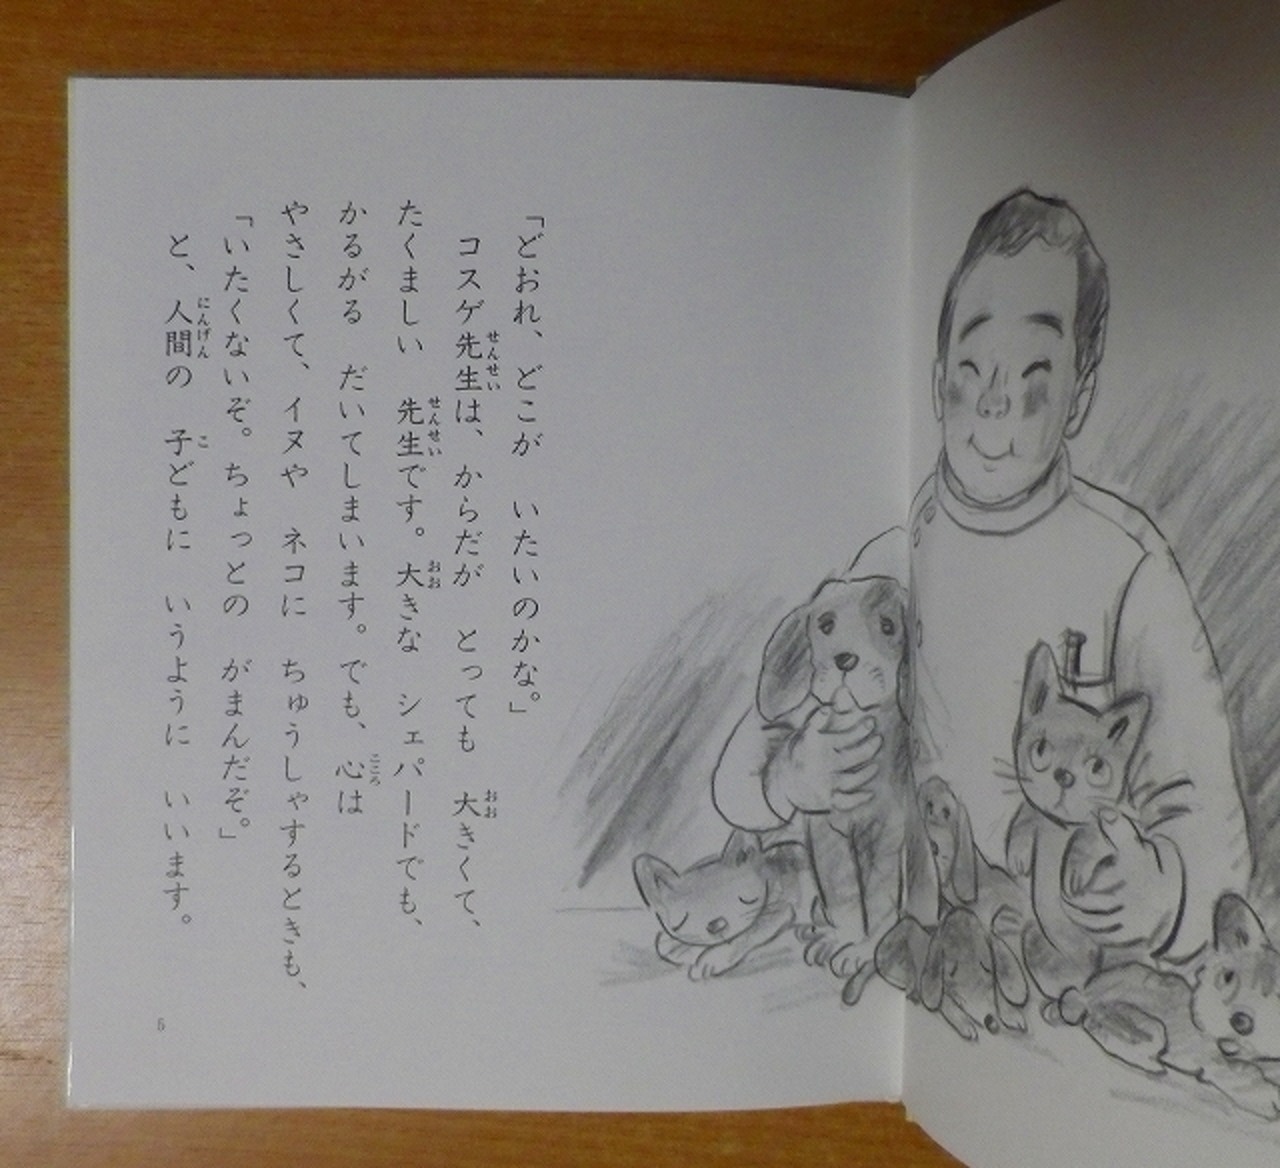 「どおれ、どこが　いたいのかな。」
コスゲ先生は、からだが　とっても　大きくて、
たくましい　先生です。大きな　シェパードでも、
かるがる　だいてしまいます。でも、心は
やさしくて、イヌや　ネコに　ちゅうしゃするときも、
「いたくないぞ。ちょっとの　がまんだぞ。」
と、人間の　子どもに　いうように　いいます。
せんせい
おお
せんせい
おお
こころ
にんげん
こ
5